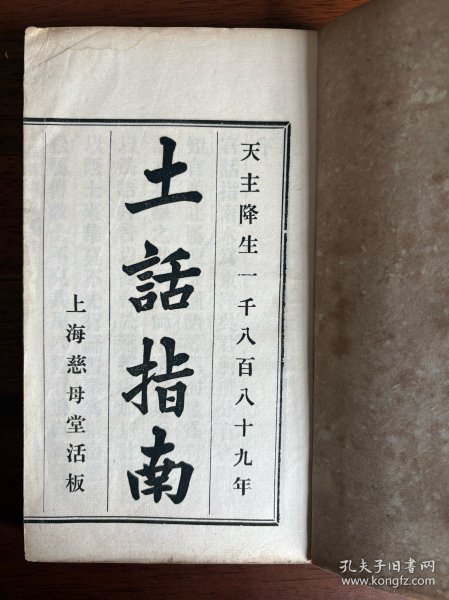 天主降生一千八百八十九年
土話指南
上海慈母堂活板
孔夫子旧书网
www.kongfz.com